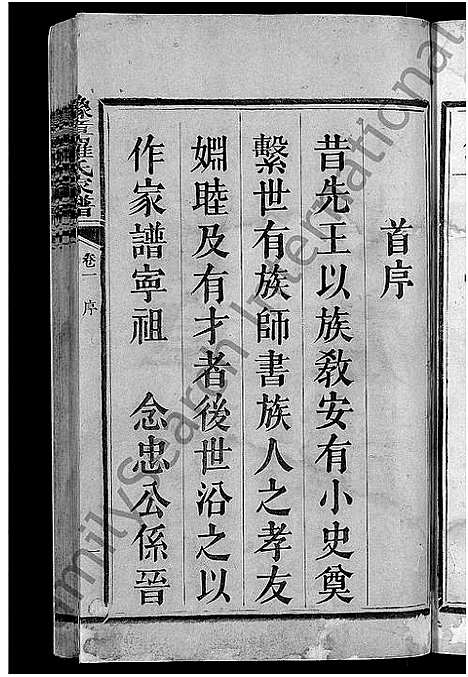 首序
昔先王以族教安有小史奠
繫世有族師書族人之孝友
婣睦及有才者後世沿之以
作家譜寧祖 念忠公係晉
豫章羅氏家譜
卷一 序
一
FamilySearch International